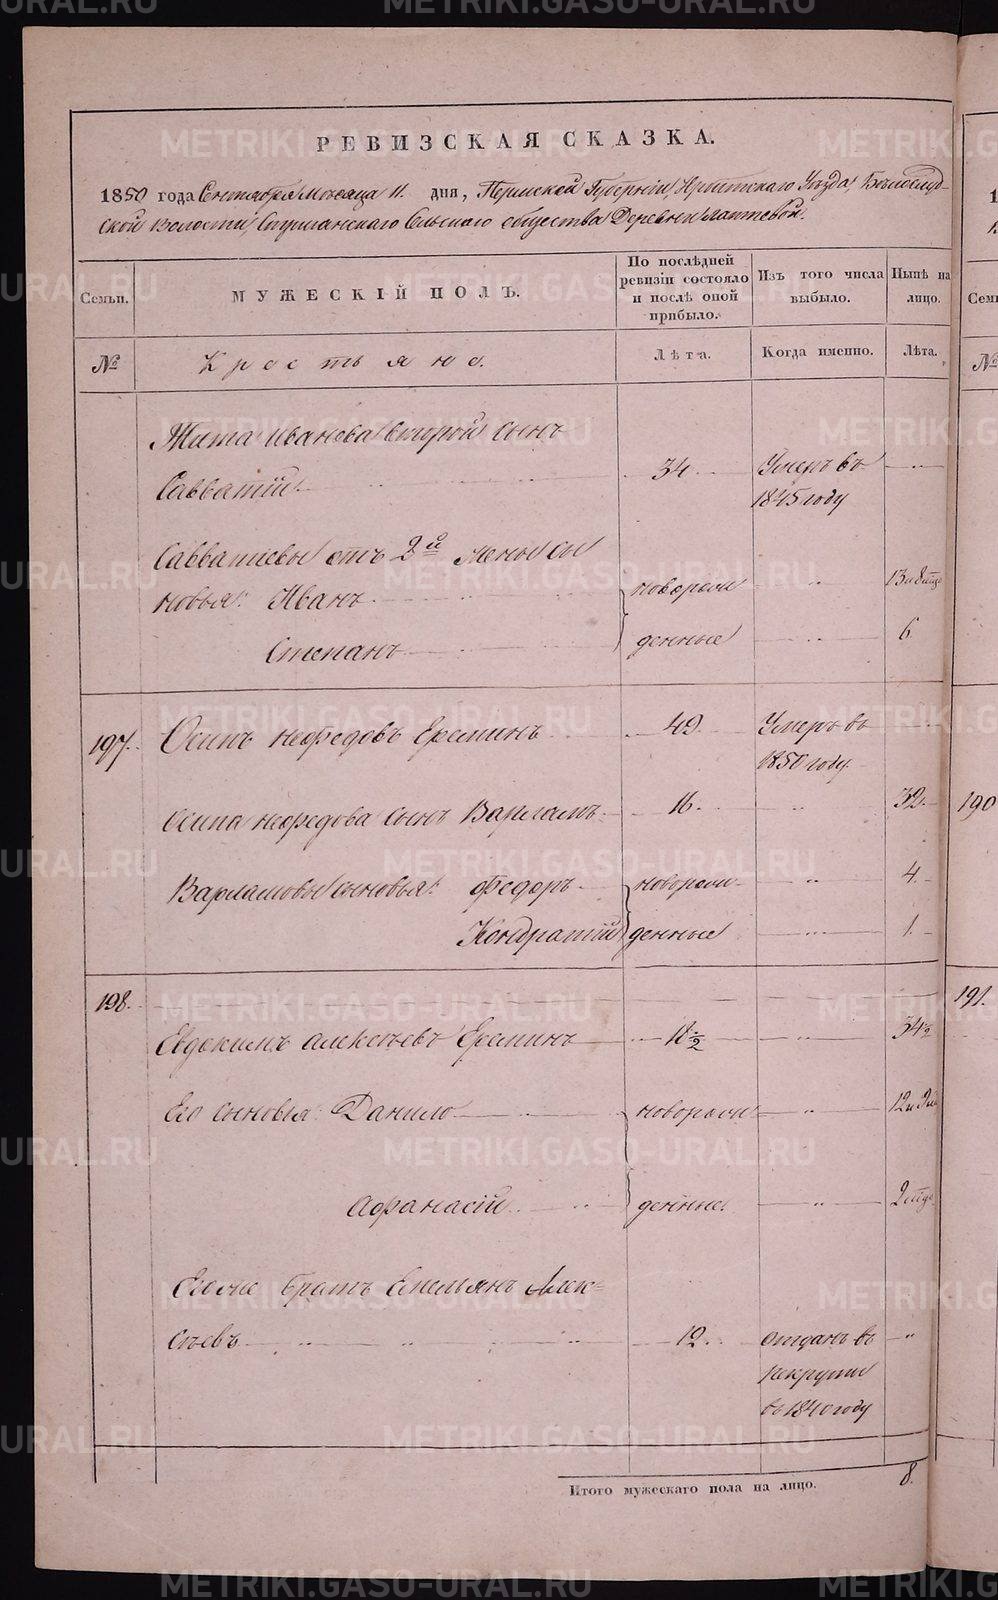 РЕВИЗСКАЯ СКАЗКА.
1850 года Сентября Месяца 11. дня, Пермской Губернии, Ирбитскаго Уезда, Белослуд-
ской Волости, Сельскаго общества Деревни Лаптевой.
Семьи.
МУЖЕСКІЙ ПОЛЪ.
По послѣдней ревизіи состояло и послѣ оной прибыло.
Изъ того числа выбыло.
Нынѣ на лицо.
Семьи
№
Крестьяне.
Лѣта.
Когда именно.
Лѣта.
№
Тита Иванова второй сынъ
Савватій 34 Умеръ въ
1845 году
Савватіевы отъ 2й жены сы
новья: Иванъ новорож 13
Степанъ денные 6
197. Осипъ Нефедовъ Ереминъ 49. Умеръ въ
1850 году
Осипа Нефедова сынъ Варламъ 16. 32. 190
Варламовы сыновья: Федоръ новорож 4
Кондратій денные 1.
198. 191.
Евдокимъ Алексѣевъ Ереминъ 18½ 34½
Его сыновья: Данило новорож 12
Афанасій денные. 2
Его же братъ Емельянъ Алек-
сѣевъ 12. отданъ въ
рекруты
въ 1840 году
Итого мужескаго пола на лицо. 8.
METRIKI.GASO-URAL.RU